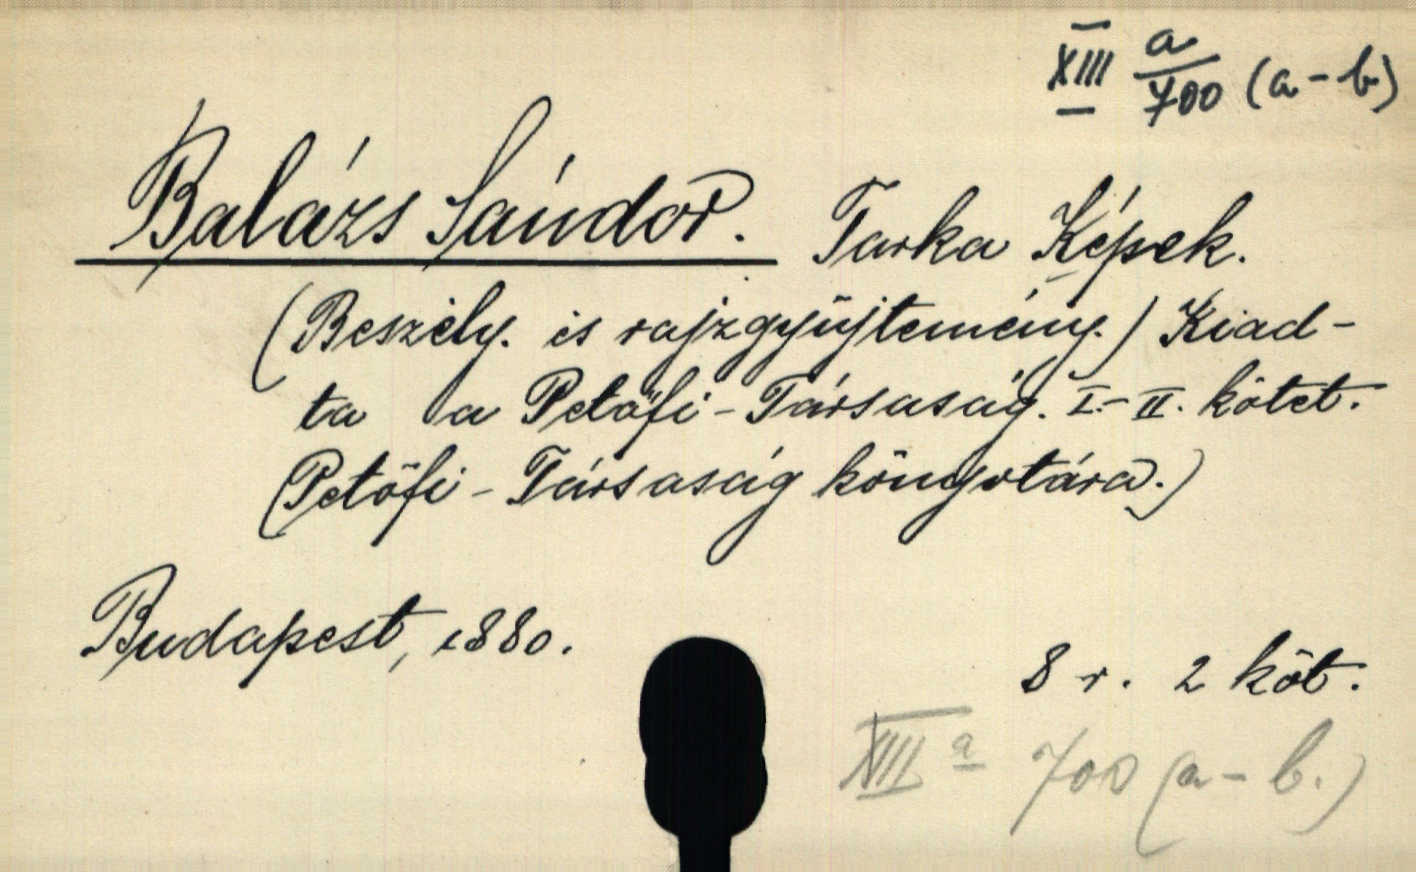 XIII a/700 (a-b)
Balázs Sándor. Tarka Képek.
(Beszély. és rajzgyűjtemény.) Kiad-
ta a Petőfi-Társaság. I.-II. kötet.
(Petőfi-Társaság könyvtára.)
Budapest, 1880.
8 r. 2 köt.
XIII a 700 (a-b.)